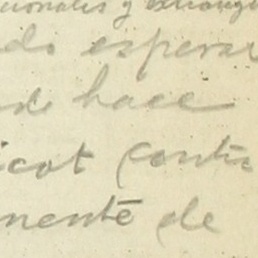 cionales y extranje
do esperar
de hace
icot contr
mente de